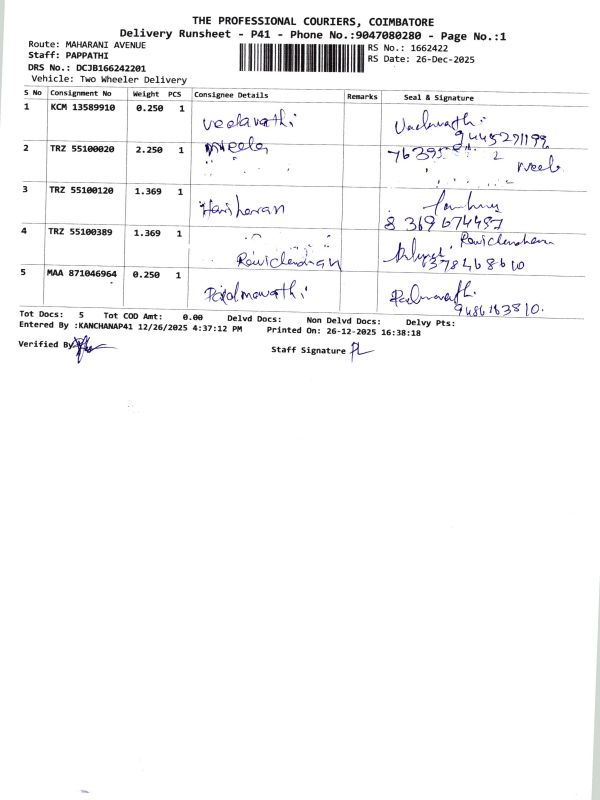 THE PROFESSIONAL COURIERS, COIMBATORE
Delivery Runsheet - P41 - Phone No.:9047080280 - Page No.:1
Route: MAHARANI AVENUE
RS No.: 1662422
Staff: PAPPATHI
RS Date: 26-Dec-2025
DRS No.: DCJB166242201
Vehicle: Two Wheeler Delivery
S No Consignment No Weight PCS Consignee Details Remarks Seal & Signature
1 KCM 13589910 0.250 1 veelavathi
2 TRZ 55100020 2.250 1
3 TRZ 55100120 1.369 1 Hariharan
8369674457
4 TRZ 55100389 1.369 1 Ravichandran
5 MAA 871046964 0.250 1
Tot Docs: 5 Tot COD Amt: 0.00 Delvd Docs: Non Delvd Docs: Delvy Pts:
Entered By :KANCHANAP41 12/26/2025 4:37:12 PM Printed On: 26-12-2025 16:38:18
Verified By
Staff Signature